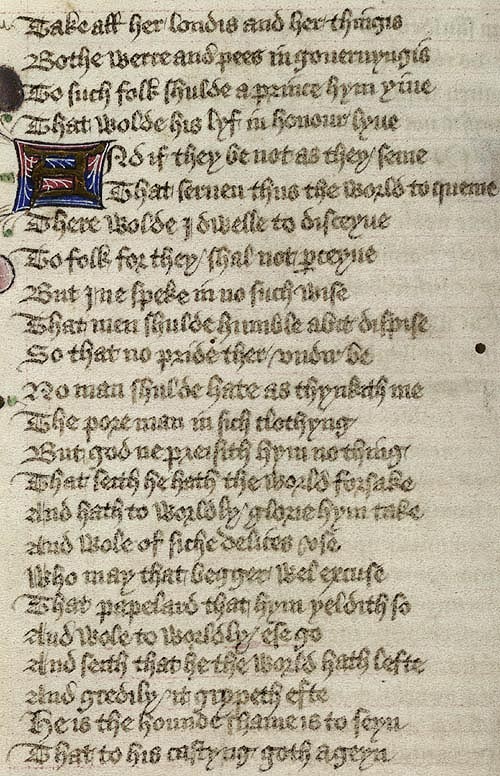 Take all her londis and her thingis
Bothe werre and pees in gouernyngis
To such folk shulde a prince hym yiue
That wolde his lyf in honour lyue
And if they be not as they seme
That seruen thus the world to queme
There wolde I dwelle to disceyue
To folk for they shal not perceyue
But I ne speke in no such wise
That men shulde humble abit dispise
So that no pride ther vndir be
No man shulde hate as thynkith me
The pore man in sich clothyng
But god ne preisith hym no thing
That seith he hath the world forsake
And hath to worldly glorie hym take
And wole of siche delices vse
Who may that begger wel excuse
That papelard that hym yeldith so
And wole to worldly ese go
And seith that he the world hath lefte
And gredily it grypeth efte
He is the hounde shame is to seyn
That to his castyng goth ageyn